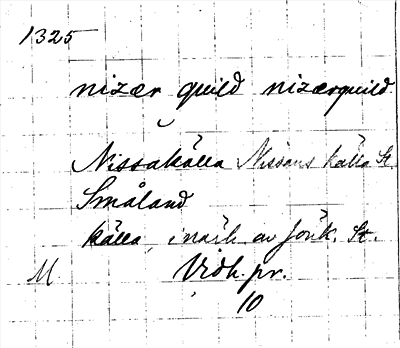 1325
nizær quild nizærquild.
Nissakälla Nissans källa St.
Småland
källa, i närh. av Jönk. St.
M. Vidh. pr.
10